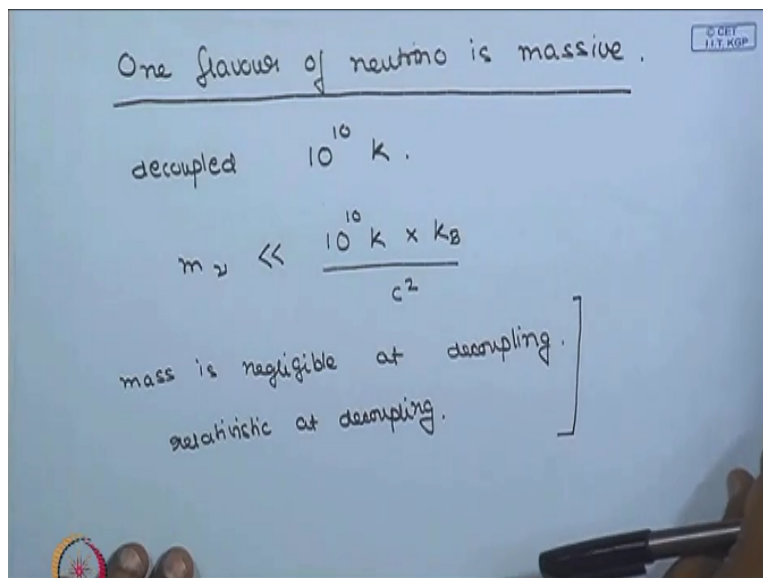 © CET
I.I.T. KGP
One flavour of neutrino is massive.
decoupled 10^10 K.
m_ν << 10^10 K × k_B / c^2
mass is negligible at decoupling.
relativistic at decoupling.